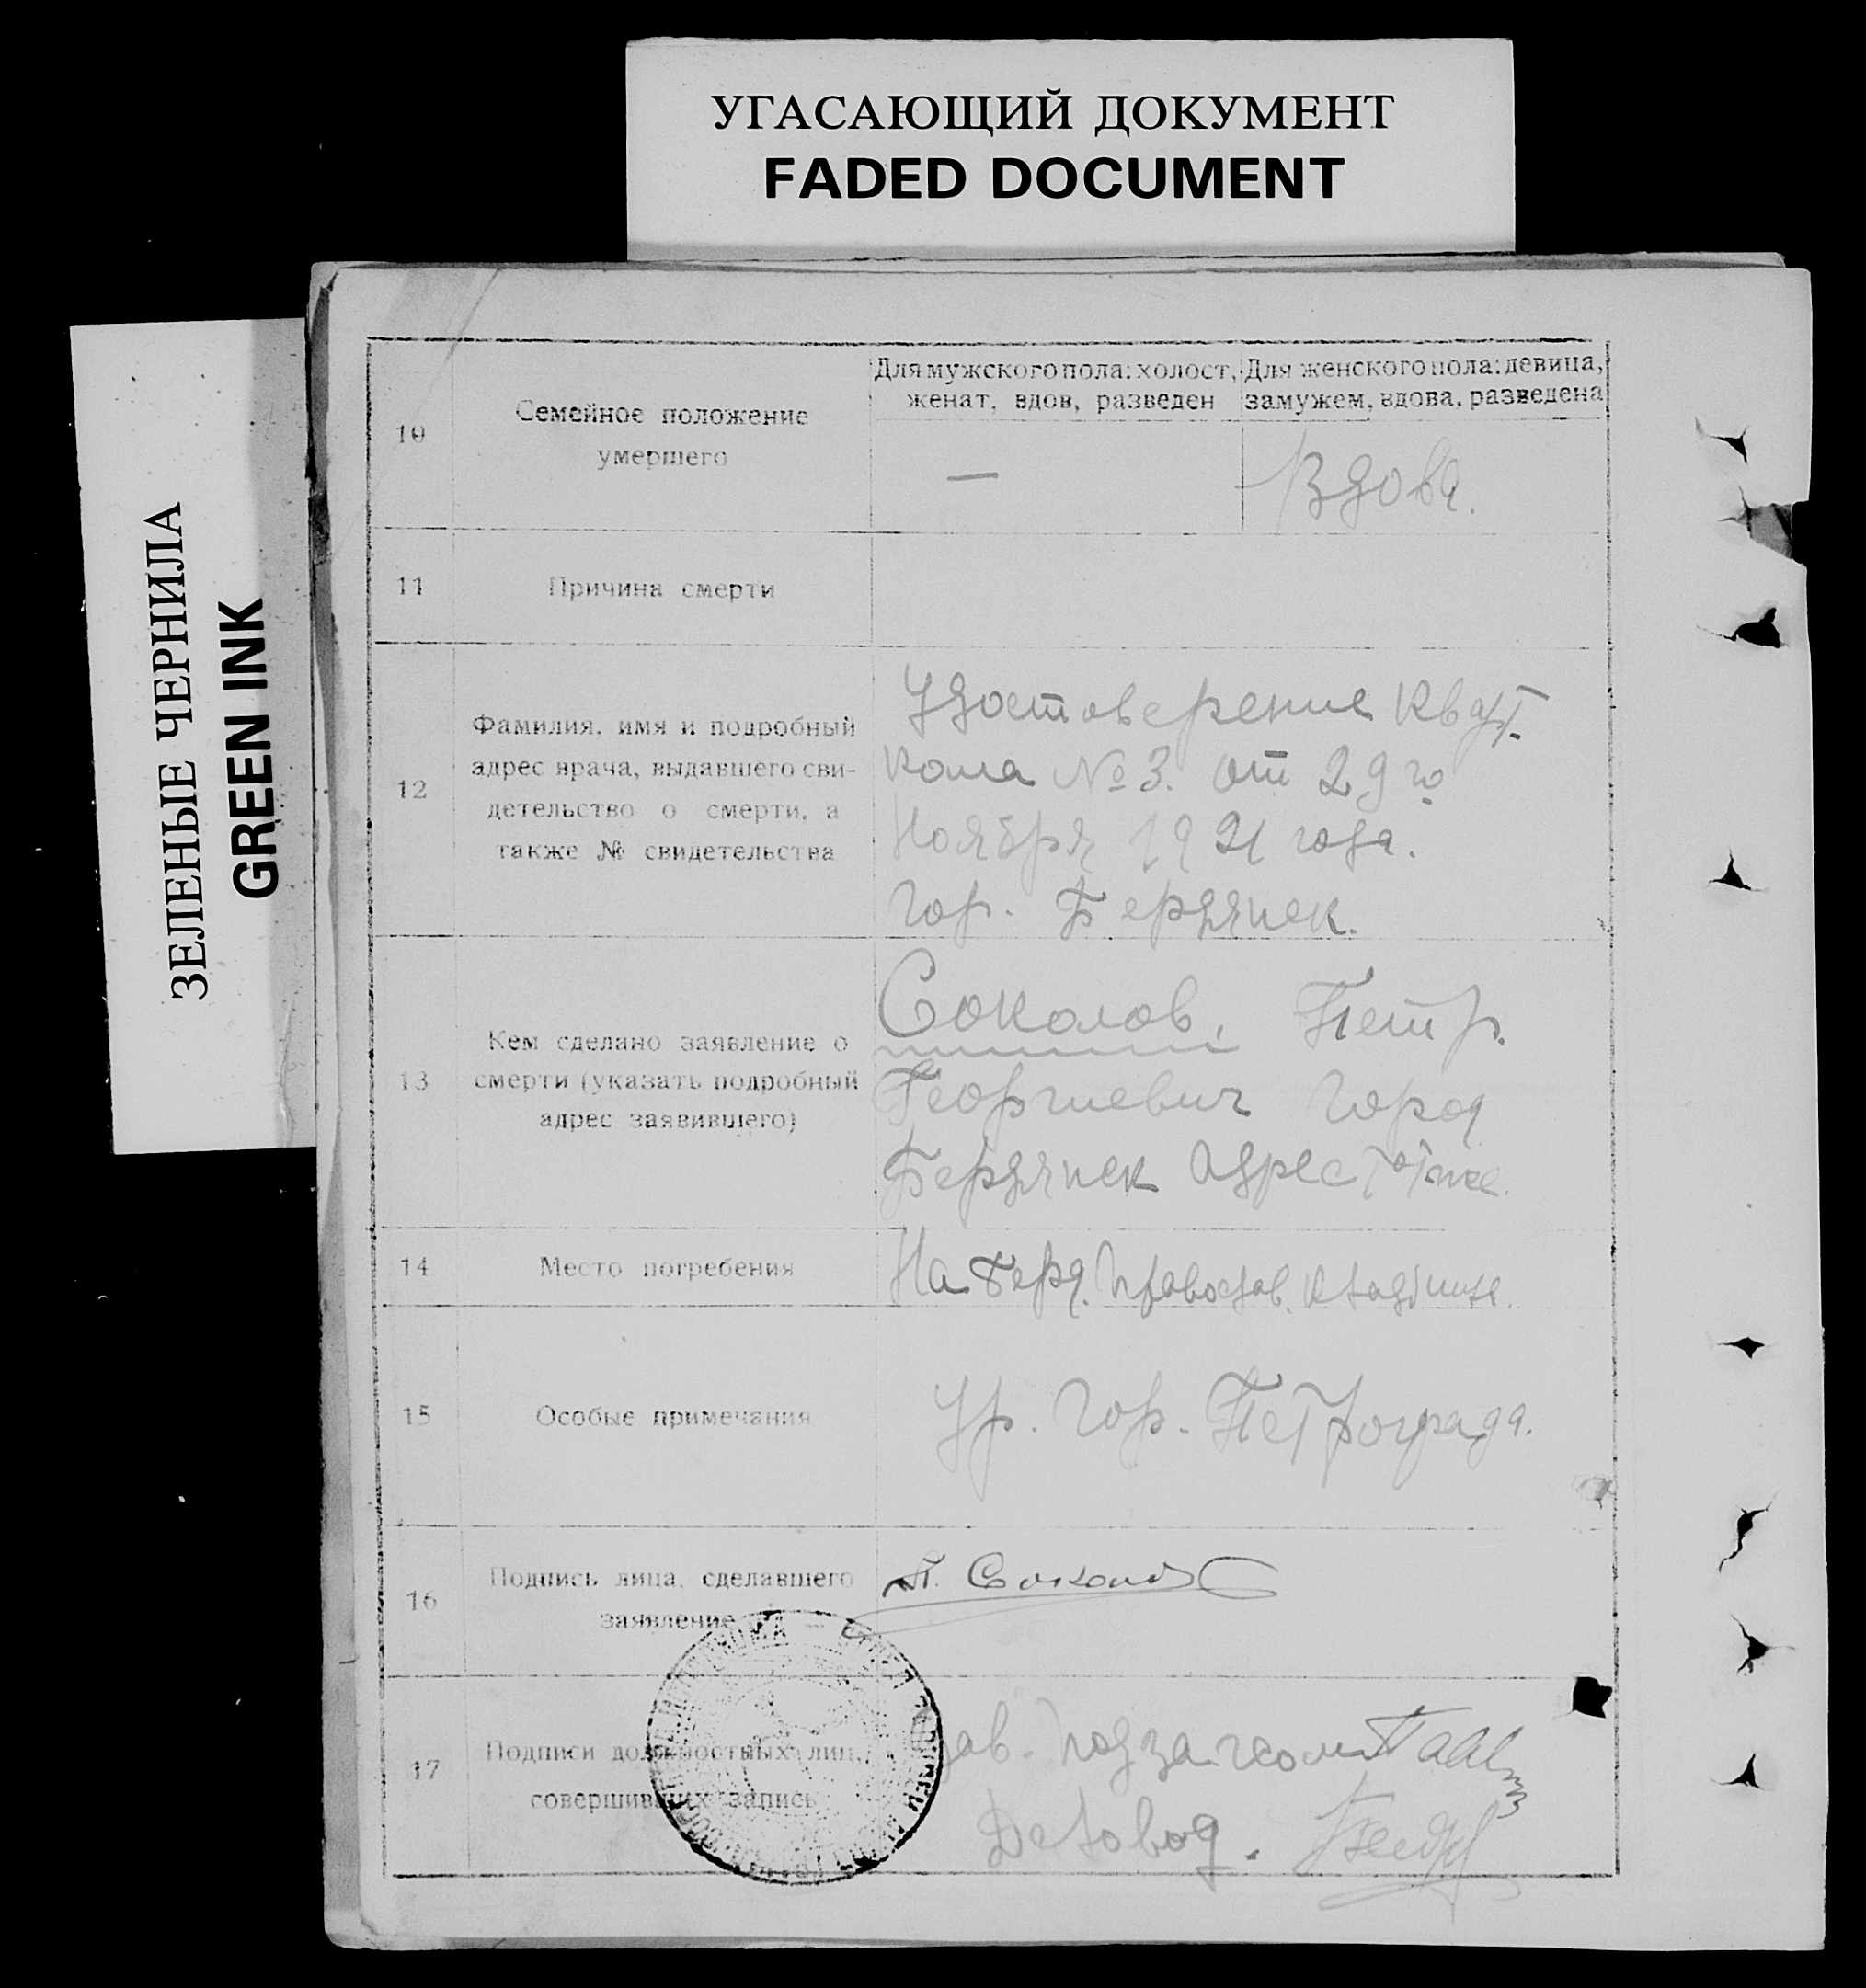 УГАСАЮЩИЙ ДОКУМЕНТ
FADED DOCUMENT
ЗЕЛЕНЫЕ ЧЕРНИЛА
GREEN INK
10
Семейное положение
умершего
Для мужского пола: холост,
женат, вдов, разведен
Для женского пола: девица,
замужем, вдова, разведена
—
Вдова.
11
Причина смерти
12
Фамилия, имя и подробный
адрес врача, выдавшего сви-
детельство о смерти, а
также № свидетельства
Удостоверение Кварт.
Кома № 3. от 29 го
Ноября 1921 года.
Гор. Бердянск.
13
Кем сделано заявление о
смерти (указать подробный
адрес заявившего)
Соколов, Петр.
Георгиевич город
Бердянск Адрес тотже.
14
Место погребения
На Берд. Православ. Кладбище.
15
Особые примечания
Ур. Гор. Петрограда.
16
Подпись лица, сделавшего
заявление
П. Соколов
17
Подписи должностных лиц,
совершивших запись
Зав. подзагсом
Деловод.